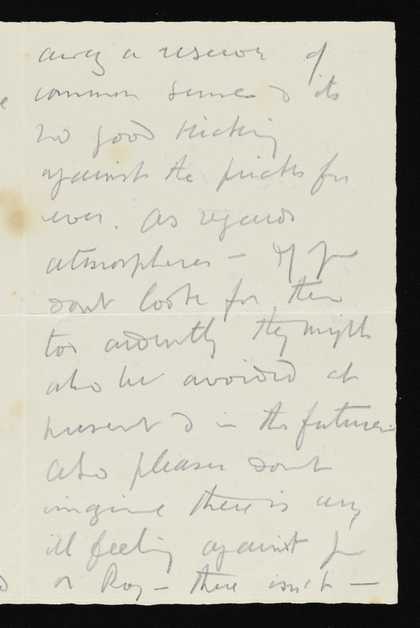 away a reserve of
common sense & its
no good kicking
against the pricks for
ever. As regards
atmospheres - If you
dont look for them
too ardently they might
also be avoided at
present & in the future.
Also please dont
imagine there is any
ill feeling against you
or Roy - there isn't -